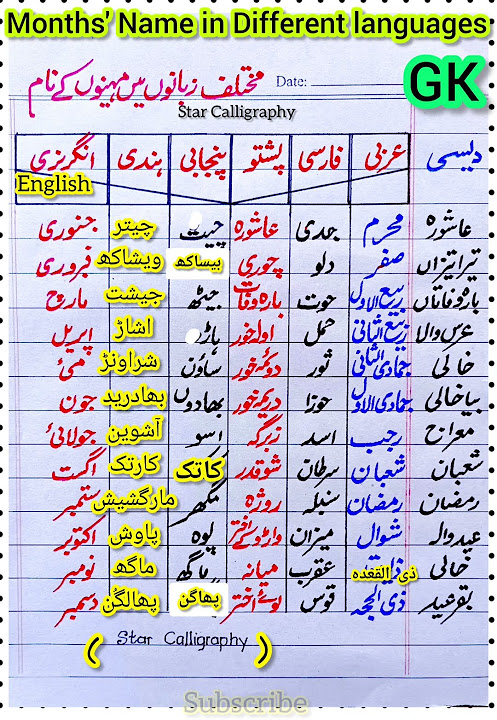 Months' Name in Different languages
مختلف زبانوں میں مہینوں کے نام
Date:
GK
Star Calligraphy
دیسی عربی فارسی پشتو پنجابی ہندی انگریزی
English
عاشورہ محرم جدی عاشورہ چیت چیتر جنوری
تیرا تیزاں صفر دلو چوری بیساکھ ویشاکھ فروری
بارہ وفاتاں ربیع الاول حوت بارہ وفات جیٹھ جیشت مارچ
عرس والا ربیع الثانی حمل اولہ خور ہاڑ اشاڑ اپریل
خالی جمادی الثانی ثور دوئمہ خور ساؤن شراونڑ مئی
بیا خالی جمادی الاول جوزا خور بھادوں بھادرپد جون
معراج رجب اسد زبرگہ اسو آشوین جولائی
شعبان شعبان سرطان شوقدر کاتک کارتک اگست
رمضان رمضان سنبلہ روژہ مگھر مارگشیش ستمبر
عیدوالہ شوال میزان پوہ پاوش اکتوبر
خالی ذی القعدہ عقرب میانہ ماگھ ماگھ نومبر
بقرعید ذی الحجہ قوس لوئے اختر پھاگن پھالگن دسمبر
( Star Calligraphy )
Subscribe